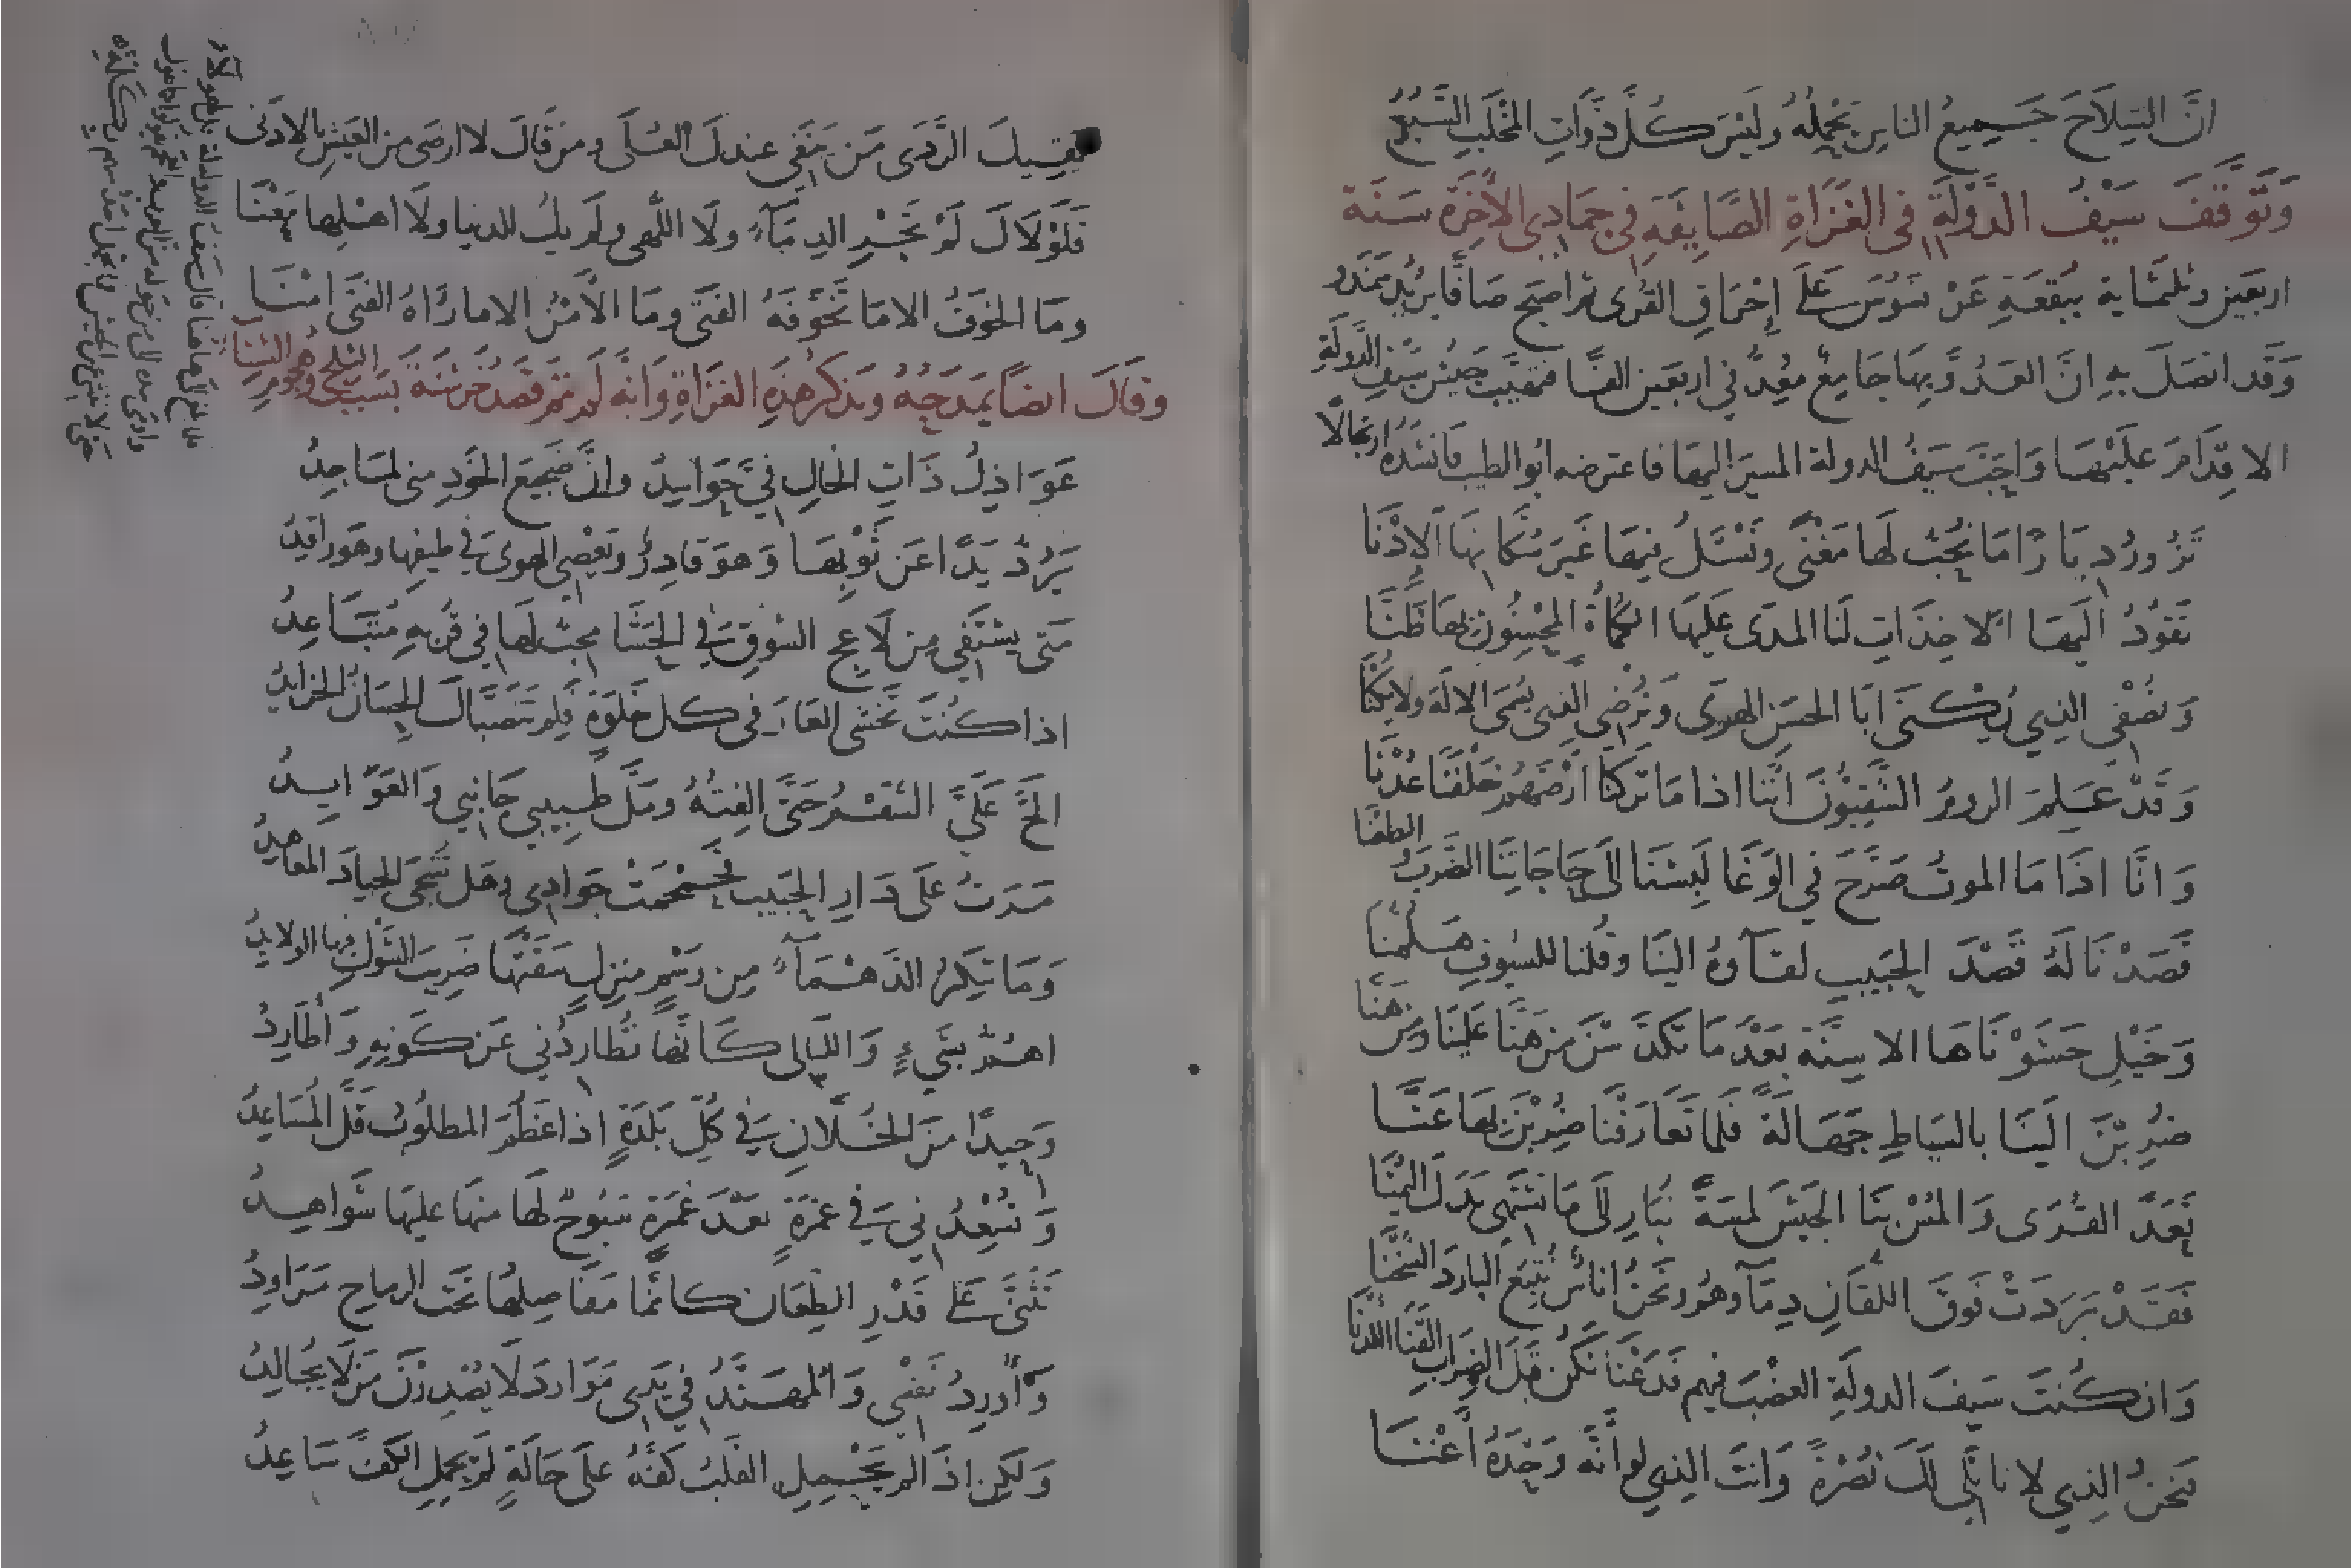 انَّ السِلَاحَ جَمِيعُ الناسِ تَحْمِلُهُ ولَيْسَ كُلَّ ذَوَاتِ المخلَبِ السَبُعُ
وَتَوَقَّفَ سَيْفُ الدَّوْلَةِ في الغَزَاةِ الصَّايفَةِ في جمَادي الآخرَة سَنَة
اربَعين وثلثماية ببُقعَةِ عَرَبْسُوسَ عَلَى إحْرَاقِ القُرى ثم اصبَح صَافًا يريد سَمَندُو
وَقَد اتصَلَ بهِ انَّ العَدُوَّ بِهَا جَامِعٌ مُعِدٌّ في اربَعين الفًا فتهيَّبَ جَيْش سَيْفِ الدَّولَةِ
الاقدَامَ عَلَيْهَا وَاحَبَّ سَيْفُ الدولة المسيرَ اليهَا فاعترضه ابُو الطيب فَانشَدَهُ ارتجالًا
نَزُورُ دِيَارًا مَا نُحِبُّ لَهَا مَغْنًى ونَسْئَلُ فيهَا غَيرَ سُكَّانِهَا الاِذْنَا
نَقُودُ اليهَا الآخِذَاتِ لَنَا المدَى عَلَيهَا الكُمَاةُ المحْسِنُونَ بهَا ظَنَّا
وَنُصْفِي الذِي يُكنَى ابَا الحسَنِ الهوَى وَنُرْضِي الذِي يُسْمَى الالَهَ ولا يكْنَا
وَقَدْ عَلِمَ الرومُ الشَّقِيُّونَ انَّنَا اذا مَا تَرَكْنَا ارْضَهُمْ خَلْفَنَا عُدْنَا
وَانَّا اذَا مَا الموتُ صَرَّحَ في الوَغَا لَبِسْنَا الَى حَاجَاتِنَا الضَّرْبَ والطعْنَا
قَصَدْنَا لَهُ قَصْدَ الحَبِيبِ لقَآؤهُ الينَا وقُلنا للسُيوفِ هَلُمُّنَا
وَخَيْلٍ حَشَوْنَاهَا الاسِنَّةَ بَعْدَ مَا تَكَدَّسْنَ مِنْ هَنَّا عَلَيْنَا ومن هَنَّا
ضُرِبْنَ الَينَا بالسِيَاطِ جَهَالَةً فَلمَا تَعَارَفْنَا ضُرِبْنَ بهَا عَنَّا
تَعَدَّ القُرَى وَالمُسْ بنَا الجَيْشَ لمسَةً نُبَارِ الَى مَا نشتَهِي يَدَكَ اليُمْنَا
فَقَدْ بَرَدَتْ فَوْقَ اللُقَانِ دِمَآؤهُمْ ونَحْنُ انَاسٌ نُتْبِعُ البَارِدَ السُّخْنَا
وَان كُنتَ سَيْفَ الدولَةِ العضْبَ فيهم فَدَعْنَا نَكُنْ قبْلَ الضِرَابِ القَنَا اللُدْنَا
فنَحْنُ الذِي لا نَاتَلِي لكَ نُصْرَةً وَانتَ الذِي لو أنَّهُ وَحْدَهُ أغْنَا
يَقِيكَ الرَّدَى مَن يَبتَغِي عندَكَ العُلَى ومن قَالَ لا ارضَى من العَيْشِ بالادنَى
فَلَوْلَاكَ لَمْ تَجْرِ الدِمَآءُ ولَا اللُّهَى ولَم يكُ للدنيا ولَا اهْلِها مَعْنَا
ومَا الخَوْفُ الا مَا تَخَوَّفَهُ الفَتَى ومَا الاَمْنُ الا ما رَاهُ الفَتَى امْنَا
وقَالَ ايضًا يَمدَحُهُ ويَذكرُ هذِهِ الغزَاةِ وَانهُ لَم يتم قصَدُ خَرشَنَةَ بسَبَبِ الثلج وهُجُومِ الشِتَا
عَوَاذِلُ ذَاتِ الخَالِ فِيَّ حَوَاسِدُ وانَّ ضَجِيعَ الخَودِ مِنى لمَاجِدُ
يَرُدُّ يَدًا عَن ثَوْبِهَا وَهوَ قَادِرٌ ويَعْصِي الهوى في طيفِها وهوَ راقِدُ
مَتَى يشتَفِي مِن لَاعِجِ الشوقِ في الحَشَا محِبٌّ لهَا في قُربِهِ مُتَبَاعِدُ
اذا كُنتَ تَخشَى العَارَ في كل خَلوَةٍ فلِم تَتَصَبَّاكَ الحِسَانُ الخَرَايدُ
الَحَّ عَلَيَّ السُّقْمُ حَتَّى الِفتُهُ ومَلَّ طَبِيبِي جَانِبِي وَالعَوَايِدُ
مَرَرتُ عَلَى دَارِ الحَبِيبِ فحَمْحَمَتْ جَوَادِي وهَل تَشْجَى الجيادَ المعَاهِدُ
وَمَا تنكِرُ الدَهْمَآءُ مِن رَسْمِ منزِلٍ سَقَتْهَا ضَرِيبَ الشَوْلِ فيها الولايدُ
اهُمُّ بشَيءٍ وَاللَّيَالي كَانَّهَا تُطَارِدُني عَن كَونِهِ وَأُطَارِدُ
وَحِيدًا مِنَ الخُلَّانِ في كُلِّ بَلدَةٍ اذا عَظُمَ المطلُوبُ قَلَّ المُسَاعِدُ
وَتُسْعِدُنِي في غمْرَةٍ بَعْدَ غَمْرَةٍ سَبُوحٌ لَهَا منهَا عليهَا شَوَاهِدُ
تَثَنَّى عَلَى قَدْرِ الطِعَانِ كَانَّمَا مَفَاصِلهُا تَحْتَ الرمَاحِ مَرَاوِدُ
وَأُورِدُ نَفْسِي وَالمُهَنَّدُ في يَدِي مَوَارِدَ لَا يُصْدِرْنَ مَن لَا يُجَالِدُ
وَلَكِن اذَا لم يَحْمِلِ القَلبُ كَفَّهُ عَلى حَالَةٍ لَم يَحمِلِ الكَفَّ سَاعِدُ